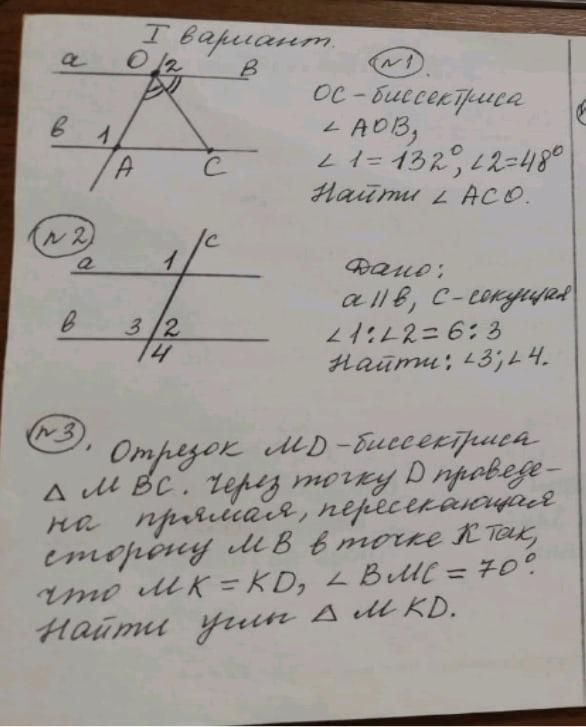 I вариант.
a O 2 B
n1.
OC-биссектриса
∠AOB,
∠1=132°, ∠2=48°
Найти ∠ACO.
в 1
A C
n2
C
a 1
в 3 2
4
Дано:
a∥в, C-секущая
∠1:∠2=6:3
Найти: ∠3; ∠4.
n3. Отрезок MD-биссектриса
△MBC. Через точку D проведе-
на прямая, пересекающая
сторону MB в точке K так,
что MK=KD, ∠BMC=70°.
Найти углы △MKD.